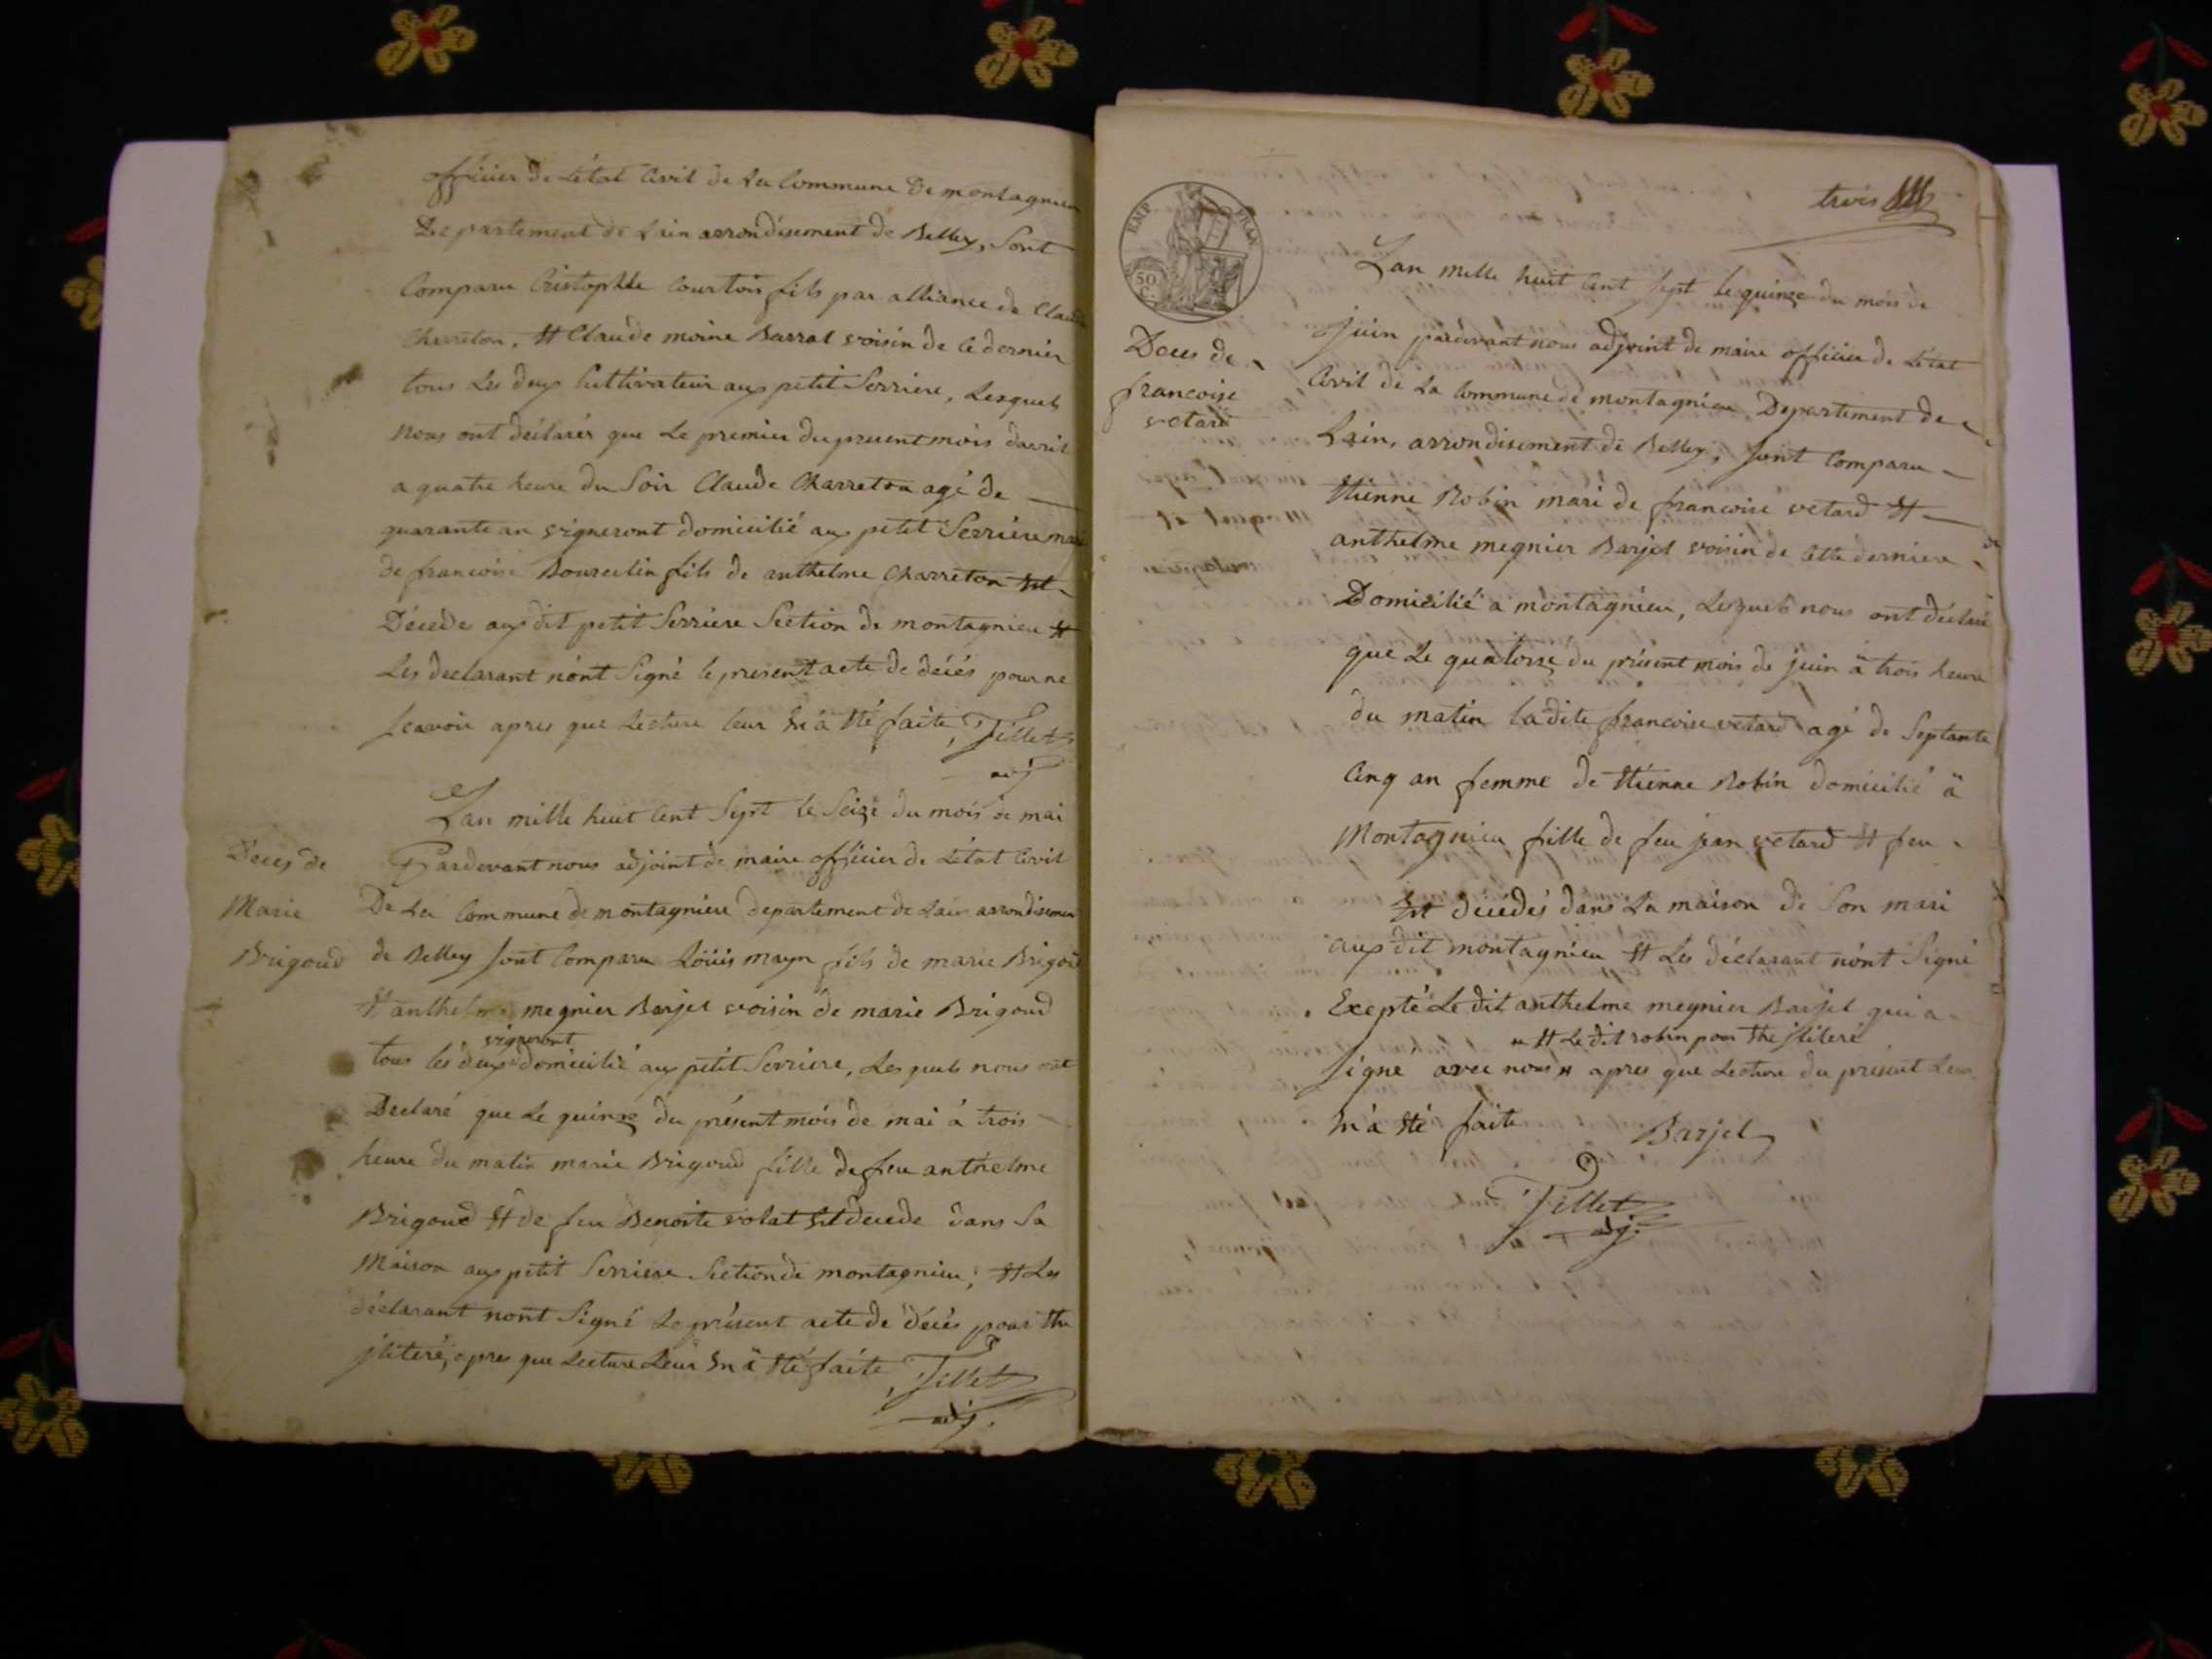 officier de Létat Civil de La Commune De montagnieu
Departement de Lain arrondisement de Belley, Sont
Comparu Cristophle Courtois fils par alliance de Claude
Charreton, Et Claude moine Barrat voisin de Ce dernier
tous Les deux Cultivateur aux petit Serriere, Lesquels
Nous ont déclarés que Le premier du present mois davril
a quatre heure du Soir Claude Charreton agé de
quarante an vigneront domicilié aux petit Serriere mari
de francoise Bourcelin fils de anthelme Charreton Est
Décede aux dit petit Serriere Section de montagnieu Et
Les declarant nónt Signé le present acte de décés pour ne
Scavoir apres que Lecture leur En á Eté faite, Tillet
adj
Lan mille huit Cent Sept le Seize du mois de mai
Deces de
Marie
Brigoud
Pardevant nous adjoint de maire officier de Létat Civil
De La Commune de montagnieu departement de Lain arrondisement
de Belley Sont Comparu Loüis mayn fils de marie Brigoud
Et anthelme megnier Barjet voisin de marie Brigoud
vigneront
tous les deux domicilié aux petit Serriere, Lesquels nous ont
Declaré que Le quinze du présent mois de mai á trois
heure du matin marie Brigoud fille de feu anthelme
Brigoud Et de feu Benoite volat Est decede dans Sa
Maison aux petit Serriere Section de montagnieu, Et Les
déclarant nont Signé Le présent acte de décés pour Etre
jliteré, apres que Lecture Leur En á Eté faite, Tillet
adj.
trois
EMP. FRAN.
50
C.
Deces de
francoise
vetard
Lan mille huit Cent Sept le quinze du mois de
juin pardevant nous adjoint de maire officier de Létat
Civil de La Commune de montagnieu Departement de
Lain, arrondisement de Belley, Sont Comparu
Etienne Robin mari de francoise vetard Et
anthelme megnier Barjet voisin de Cette derniere
Domicilié a montagnieu, Lesquels nous ont déclaré
que Le quatorze du présent mois de juin á trois heure
du matin ladite francoise vetard agé de Septante
Cinq an femme de Etienne Robin domicilié á
Montagnieu fille de feu jean vetard Et feu
Est décedés dans La maison de Son mari
aux dit montagnieu Et Les déclarant nónt Signé
Excepté Le dit anthelme megnier Barjet qui a
Et Le dit robin pour Etre jliteré
signé avec nous apres que Lecture du présent Leur
En á Eté faite Barjet
Tillet
adj.